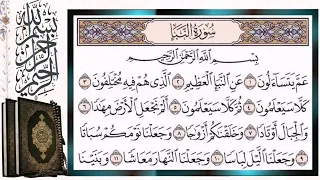 سُورَةُ النَّبَإِ
بِسْمِ اللَّهِ الرَّحْمَٰنِ الرَّحِيمِ
عَمَّ يَتَسَاءَلُونَ ١ عَنِ النَّبَإِ الْعَظِيمِ ٢ الَّذِي هُمْ فِيهِ مُخْتَلِفُونَ ٣
كَلَّا سَيَعْلَمُونَ ٤ ثُمَّ كَلَّا سَيَعْلَمُونَ ٥ أَلَمْ نَجْعَلِ الْأَرْضَ مِهَٰدًا ٦
وَالْجِبَالَ أَوْتَادًا ٧ وَخَلَقْنَٰكُمْ أَزْوَٰجًا ٨ وَجَعَلْنَا نَوْمَكُمْ سُبَاتًا
٩ وَجَعَلْنَا الَّيْلَ لِبَاسًا ١٠ وَجَعَلْنَا النَّهَارَ مَعَاشًا ١١ وَبَنَيْنَا
بسم الله الرحمن الرحيم